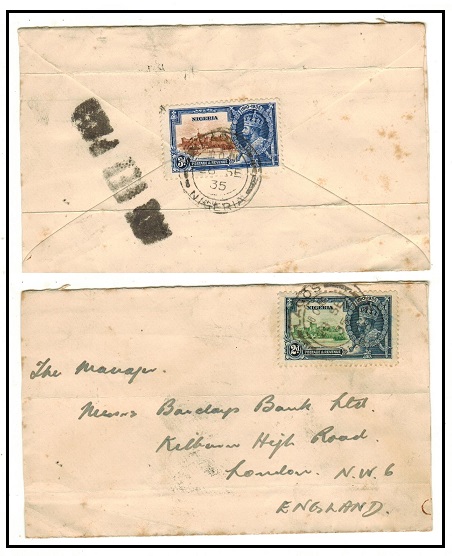 NIGERIA
3d
POSTAGE & REVENUE
SE
35
NIGERIA
NIGERIA
2d
POSTAGE & REVENUE
The Manager.
Messrs Barclays Bank Ltd.
Kilburn High Road.
London. N.W.6
ENGLAND.